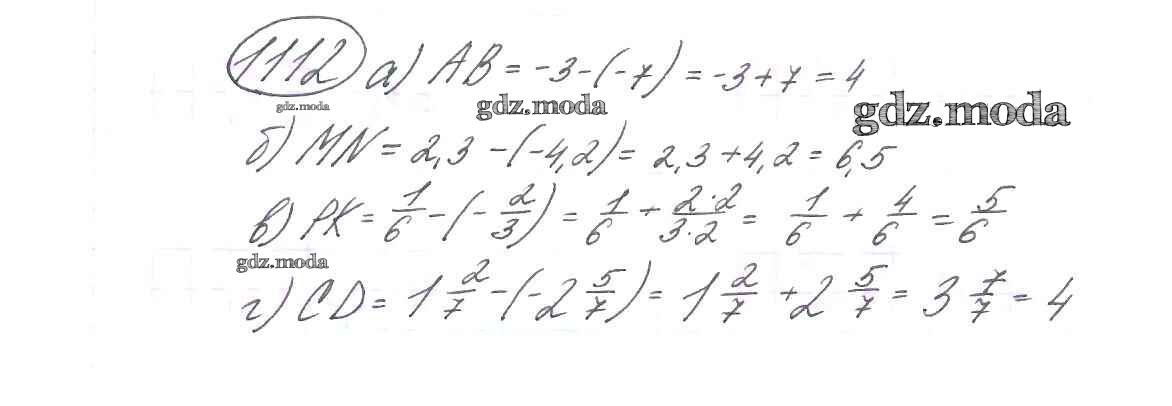 1112 а) AB = -3 - (-7) = -3 + 7 = 4
gdz.moda gdz.moda gdz.moda
б) MN = 2,3 - (-4,2) = 2,3 + 4,2 = 6,5
в) PK = 1/6 - (-2/3) = 1/6 + 2·2/3·2 = 1/6 + 4/6 = 5/6
gdz.moda
г) CD = 1 2/7 - (-2 5/7) = 1 2/7 + 2 5/7 = 3 7/7 = 4